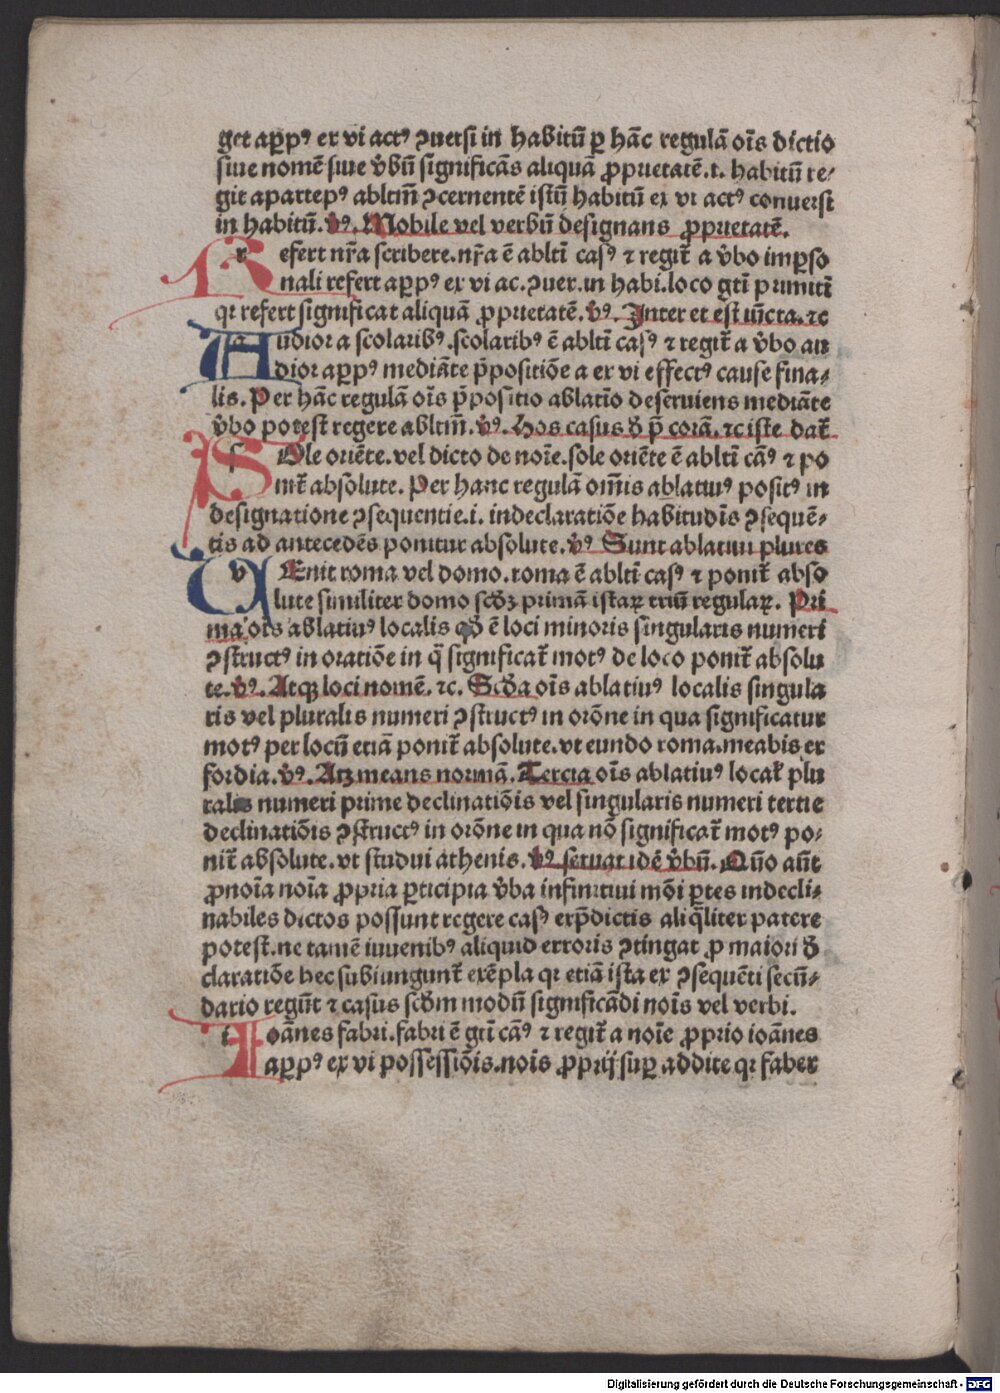 get aꝑpꝰ ex vi actꝰ ꝯuersi in habitū ꝑ hāc regulā oīs dictio
siue nomē siue v̄bū significās aliquā ꝓprietatē.t. habitū re⸗
git aparte pꝰ abltm̄ ꝯcernentē istū habitū ex vi actꝰ conuersi
in habitū. v̄ꝰ. Mobile vel verbū designans ꝓprietatē.
Refert nr̄a scribere. nr̄a ē ablti casꝰ ⁊ regit̄ a v̄bo imꝑso
nali refert aꝑpꝰ ex vi ac. ꝯuer. in habi. loco gti primiti
qꝛ refert significat aliquā ꝓprietatē. v̄ꝰ. Inter et est iūcta. ⁊c
Audior a scolaribꝰ. scolaribꝰ ē ablti casꝰ ⁊ regit̄ a v̄bo au
dior aꝑpꝰ mediāte p̄positiōe a ex vi effectꝰ cause fina⸗
lis. Per hāc regulā oīs p̄positio ablatio deseruiens mediāte
v̄bo potest regere abltm̄. v̄ꝰ. Hos casus ꝺ̄ p̄ corā. ⁊c iste dat̄
SOle oriēte. vel dicto de noīe. sole oriēte ē ablti cāꝰ ⁊ po
nit̄ absolute. Per hanc regulā om̄is ablatiuꝰ positꝰ in
designatione ꝯsequentie .i. in declaratiōe habitudīs ꝯsequē⸗
tis ad antecedēs ponitur absolute. v̄ꝰ Sunt ablatiui plures
VEnit roma vel domo. roma ē ablti casꝰ ⁊ ponit̄ abso
lute similiter domo scd̄ꝫ primā istaꝝ triū regulaꝝ. Pri
ma oīs ablatiuꝰ localis qd̄ ē loci minoris singularis numeri
ꝯstructꝰ in oratiōe in q̄ significat̄ motꝰ de loco ponit̄ absolu
te. v̄ꝰ. Atqꝫ loci nomē. ⁊c. Scd̄a oīs ablatiuꝰ localis singula
ris vel pluralis numeri ꝯstructꝰ in orōne in qua significatur
motꝰ per locū etiā ponit̄ absolute. vt eundo roma. meabis er
fordia. v̄ꝰ. Atꝫ means normā. Tercia oīs ablatiuꝰ local̄ plu
ralis numeri prime declinatiōis vel singularis numeri tertie
declinatiōis ꝯstructꝰ in orōne in qua nō significat̄ motꝰ po⸗
nit̄ absolute. vt studui athenis. v̄ꝰ seruat idē v̄bū. Qūo aūt
ꝓnoīa noīa ꝓpria ꝑticipia v̄ba infinitiui mōi ꝑtes indecli⸗
nabiles dictos possunt regere casꝰ exp̄dictis aliq̄liter patere
potest. ne tamē iuuenibꝰ aliquid erroris ꝯtingat ꝓ maiori ꝺ̄
claratiōe hec subiungunt̄ exēpla qꝛ etiā ista ex ꝯsequēti secū⸗
dario regūt ⁊ casus scd̄m modū significādi noīs vel verbi.
Ioānes fabri. fabri ē gti cāꝰ ⁊ regit̄ a noīe ꝓprio ioānes
aꝑpꝰ ex vi possessiōis. noīs ꝓprij suꝑ addite qꝛ faber
Digitalisierung gefördert durch die Deutsche Forschungsgemeinschaft - DFG